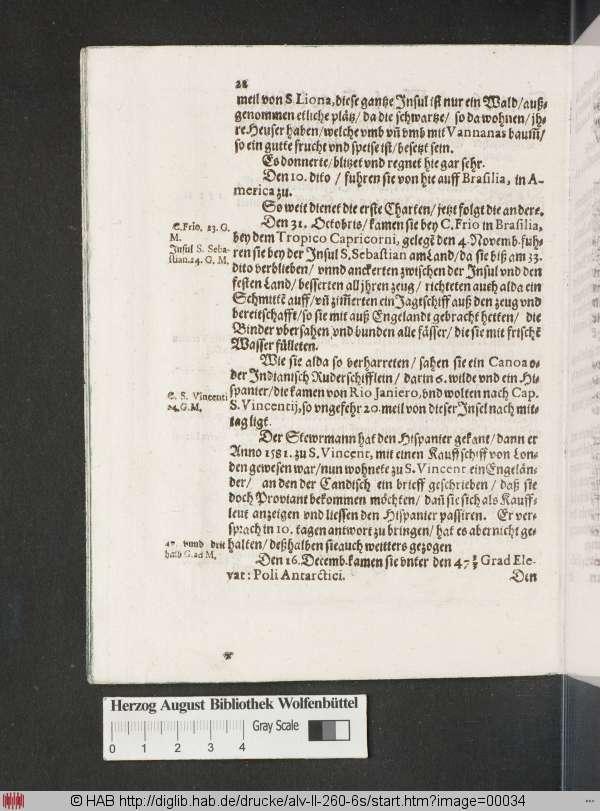 22
meil von S. Liona, diese gantze Insul ist nur ein Wald / auß-
genommen etliche plätz / da die schwartze / so da wohnen / jh-
re Heuser haben / welche vmb vñ vmb mit Vannanas baum̃ /
so ein gutte frucht vnd speise ist / besetzt sein.
Es donnerte / blitzet vnd regnet hie gar sehr.
Den 10. dito / fuhren sie von hie auff Brasilia, in A-
merica zu.
So weit dienet die erste Charten / jetzt folgt die andere.
C. Frio. 23. G.
M.
Den 31. Octobris / kamen sie bey C. Frio in Brasilia,
bey dem Tropico Capricorni, gelegẽ den 4. Novemb. fuh-
Insul S. Seba-
stian. 24. G. M.
ren sie bey der Insul S. Sebastian am Land / da sie biß am 33.
dito verblieben / vnnd anckerten zwischen der Insul vnd den
festen Land / besserten all jhren zeug / richteten auch alda ein
Schmittẽ auff / vñ zim̃erten ein Jagtschiff auß den zeug vnd
bereitschafft / so sie mit auß Engelandt gebracht hetten / die
Binder vbersahen vnd bunden alle fässer / die sie mit frischẽ
Wasser fülleten.
Wie sie alda so verharreten / sahen sie ein Canoa o-
der Indianisch Ruderschifflein / darin 6. wilde vnd ein Hi-
C. S. Vincenti
24. G. M.
spanier / die kamen von Rio Janiero, vnd wolten nach Cap.
S. Vincentij, so vngefehr 20. meil von dieser Insel nach mit-
tag ligt.
Der Stewrmann hat den Hispanier gekant / dann er
Anno 1581. zu S. Vincent, mit einen Kauffschiff von Lon-
den gewesen war / nun wohnete zu S. Vincent ein Engelän-
der / an den der Candisch ein brieff geschrieben / daß sie
doch Proviant bekommen möchten / dañ sie sich als Kauff-
leut anzeigen vnd liessen den Hispanier passiren. Er ver-
sprach in 10. tagen antwort zu bringen / hat es aber nicht ge-
halten / deßhalben sie auch weitters gezogen
47. vnnd drit
halb G. ad M.
Den 16. Decemb. kamen sie vnter den 47 Grad Ele-
vat: Poli Antarctici.
Den
Herzog August Bibliothek Wolfenbüttel
Gray Scale
0 1 2 3 4
© HAB http://diglib.hab.de/drucke/alv-ll-260-6s/start.htm?image=00034